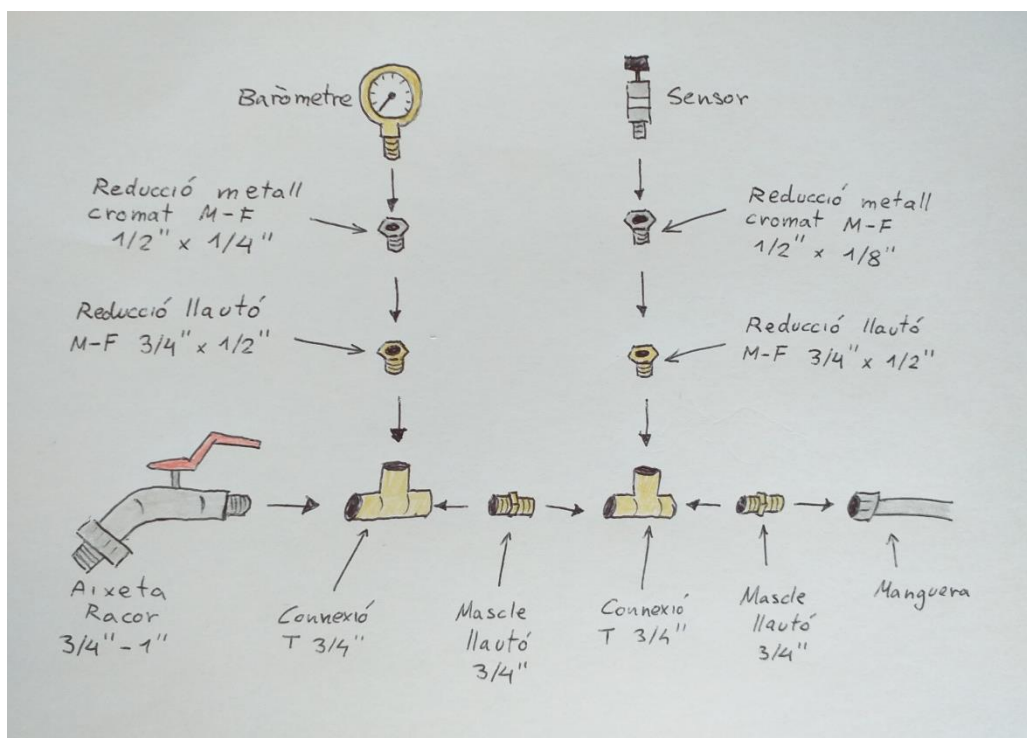 Baròmetre
Sensor
Reducció metall
cromat M-F
1/2" x 1/4"
Reducció metall
cromat M-F
1/2" x 1/8"
Reducció llautó
M-F 3/4" x 1/2"
Reducció llautó
M-F 3/4" x 1/2"
Aixeta
Racor
3/4"-1"
Connexió
T 3/4"
Mascle
llautó
3/4"
Connexió
T 3/4"
Mascle
llautó
3/4"
Manguera